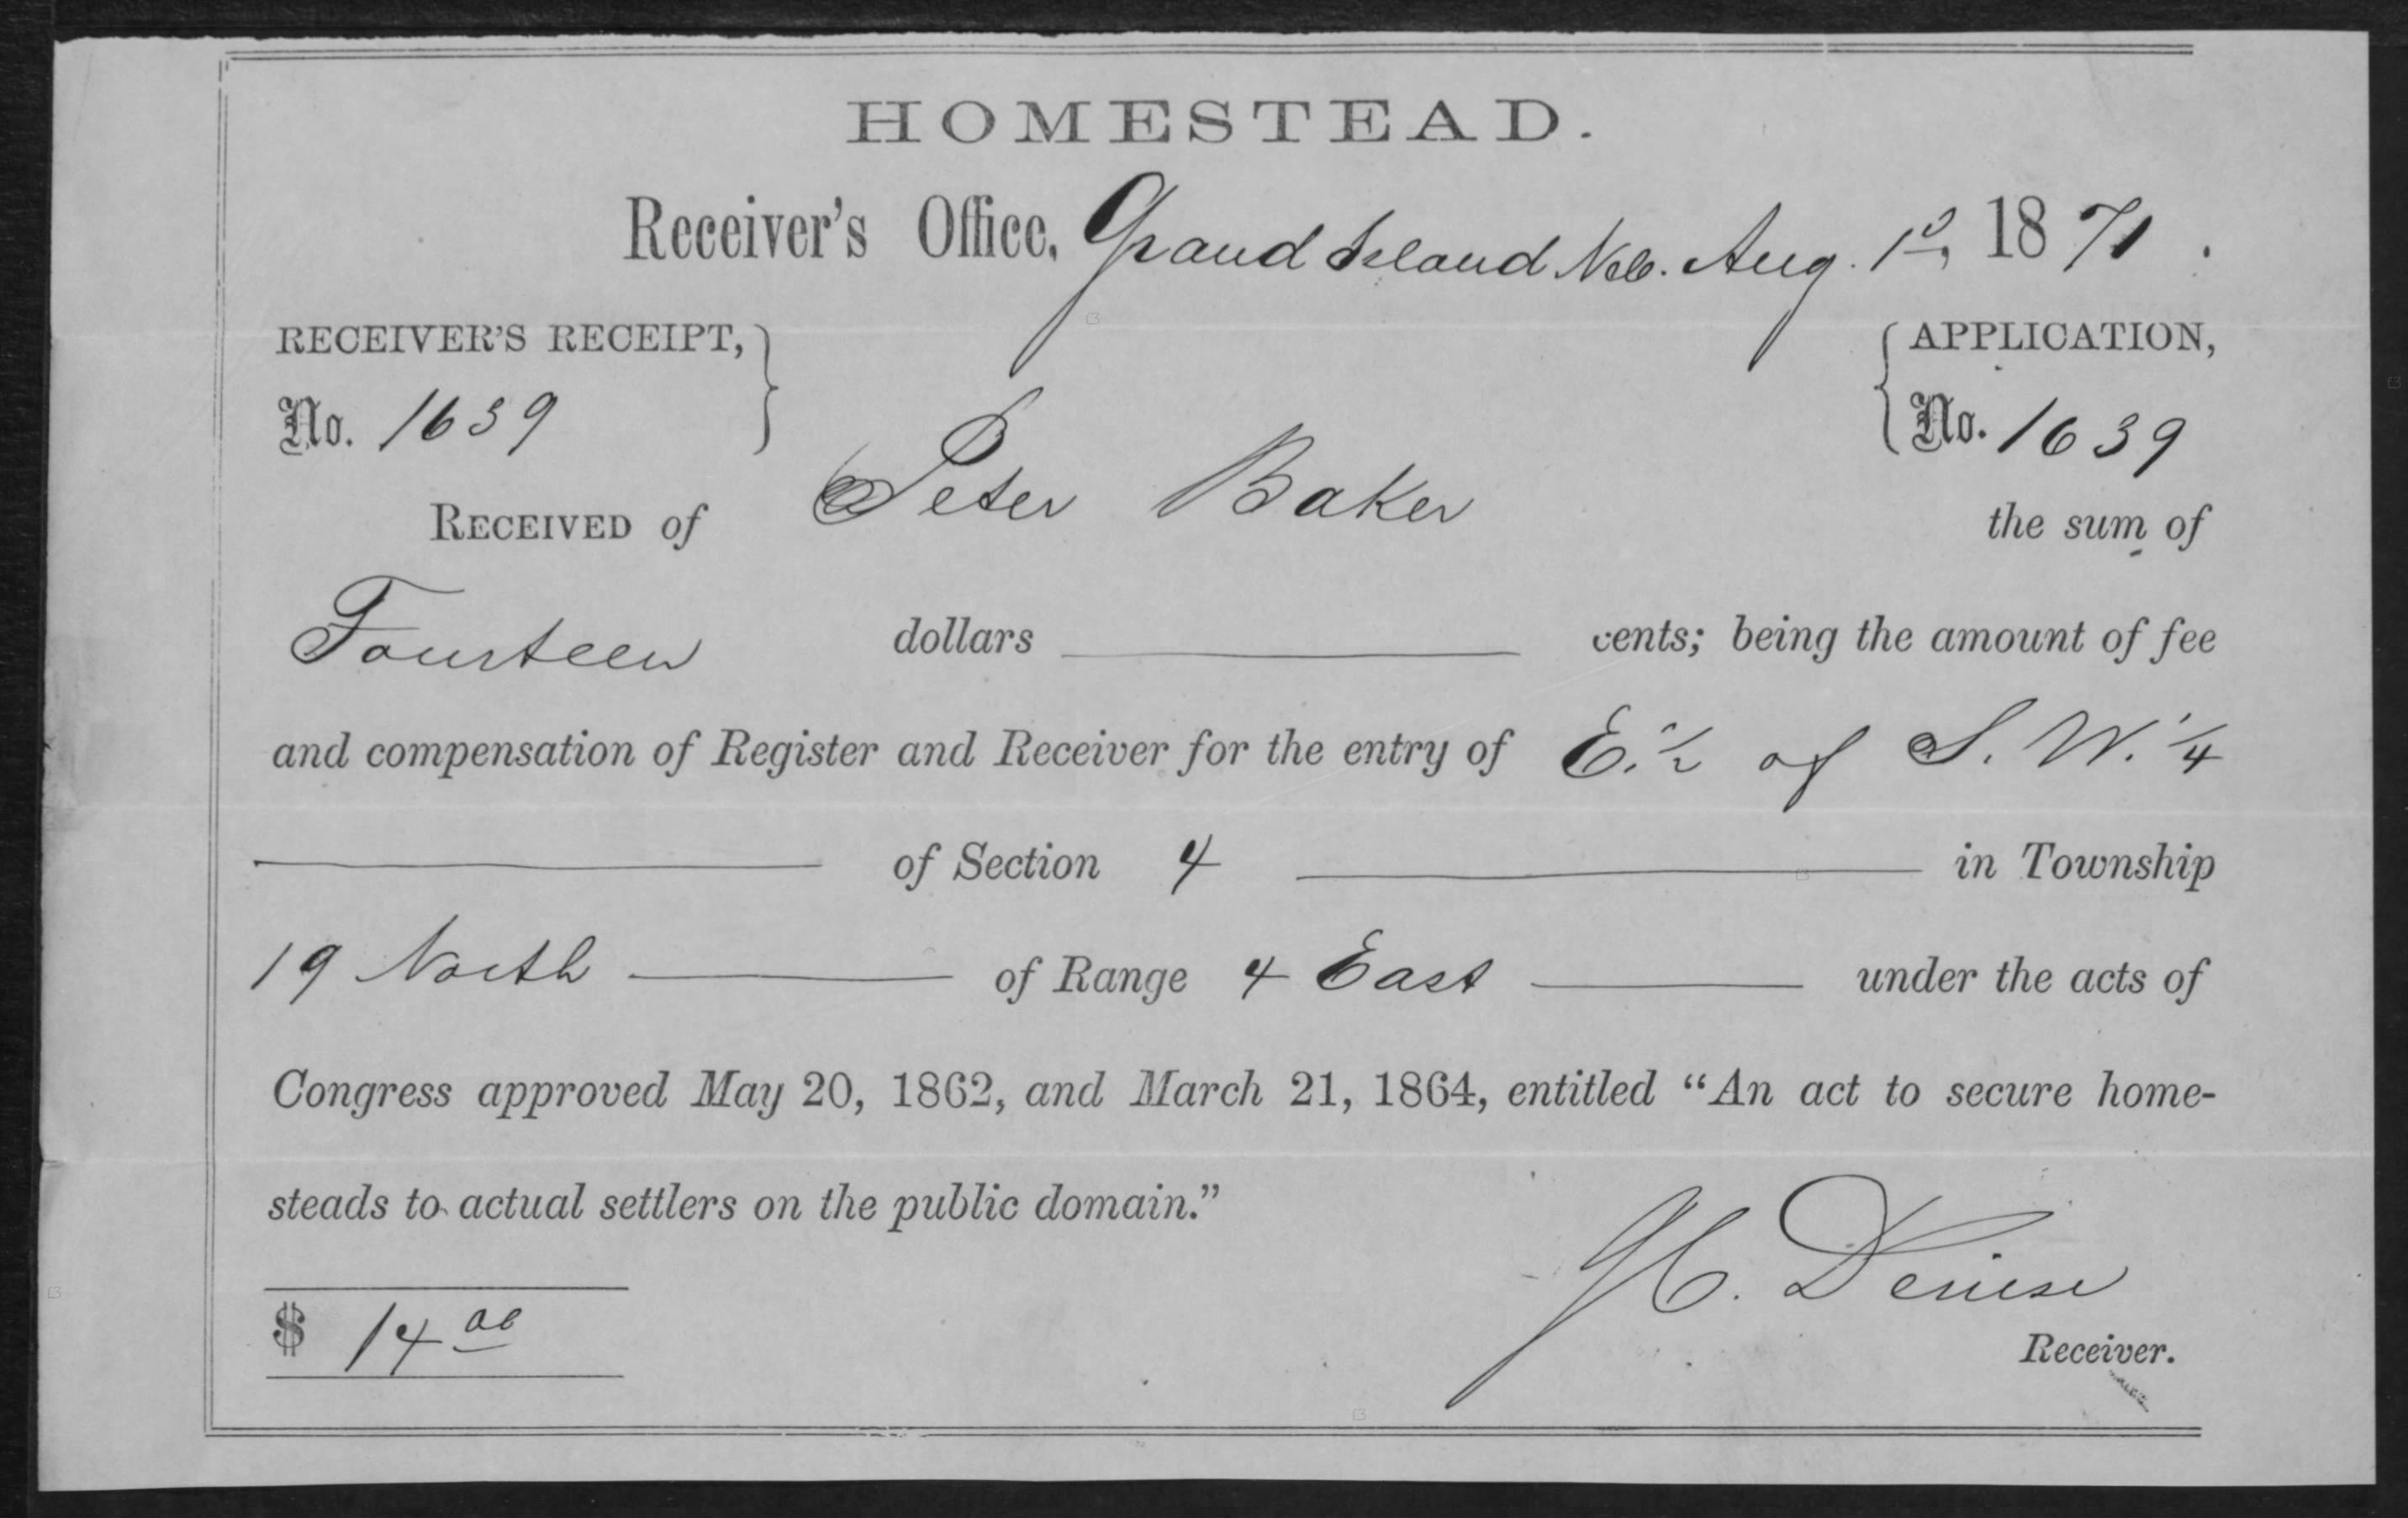 HOMESTEAD.
Receiver's Office, Grand Island Neb. Aug. 1st, 1871.
RECEIVER'S RECEIPT, APPLICATION,
No. 1639 No. 1639
RECEIVED of Peter Baker the sum of
Fourteen dollars cents; being the amount of fee
and compensation of Register and Receiver for the entry of E. 1/2 of S. W. 1/4
of Section 4 in Township
19 North of Range 4 East under the acts of
Congress approved May 20, 1862, and March 21, 1864, entitled “An act to secure home-
steads to actual settlers on the public domain.”
$ 14 00
Denise
Receiver.